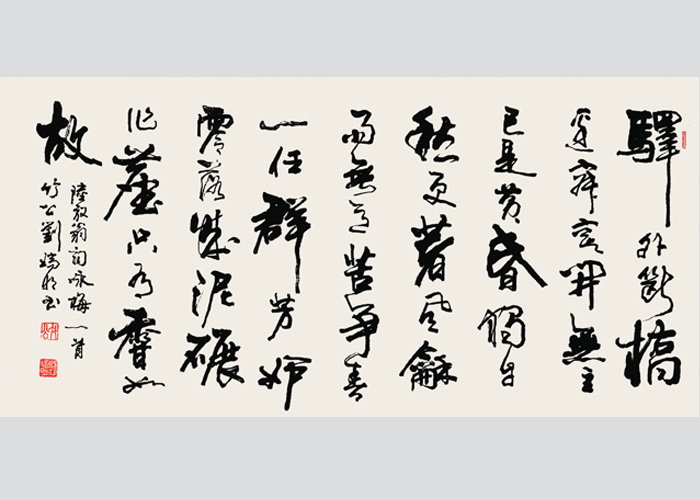 驛外斷橋
邊寂寞開無主
已是黄昏獨自
愁更著風龢
雨無意苦爭春
一任群芳妒
零落成泥碾
作塵只有香如
故
陸放翁詞咏梅一首
竹公劉書